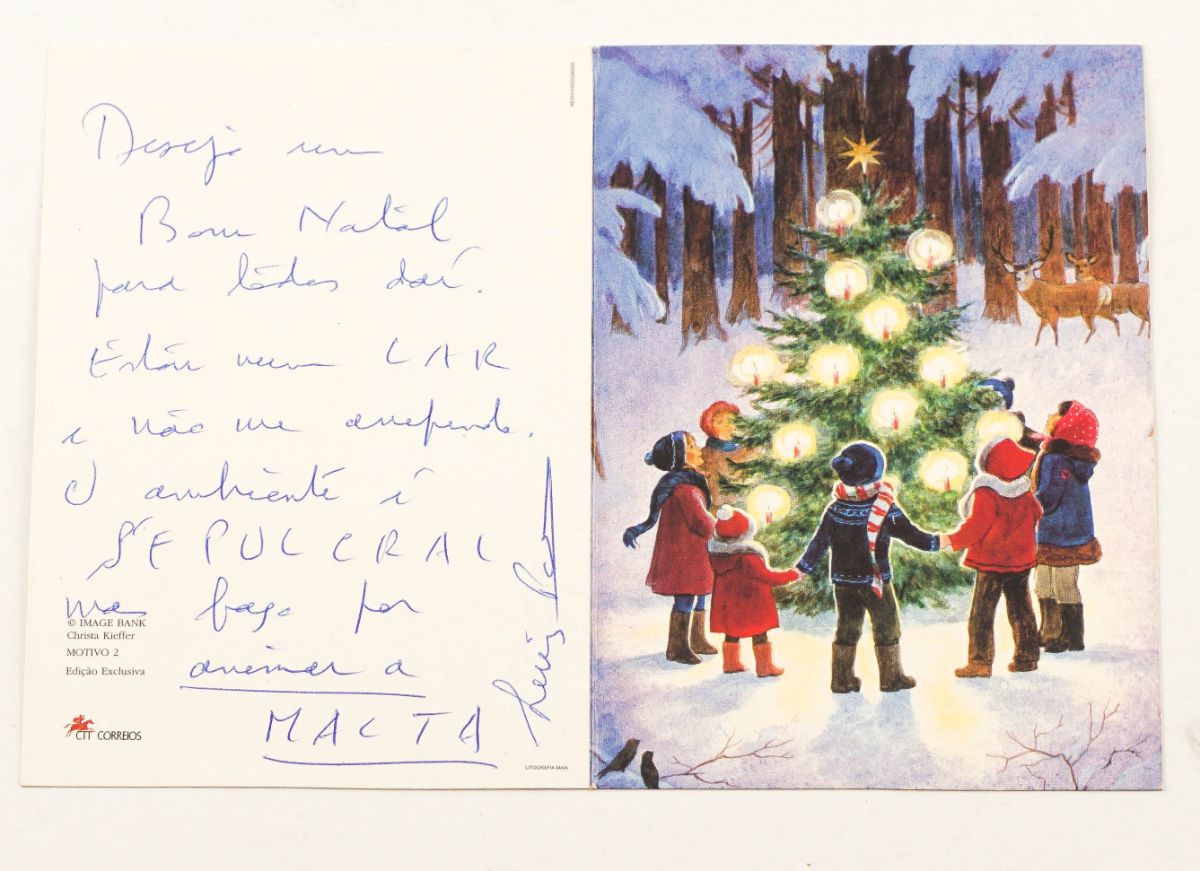 Desejo um
Bom Natal
para todos daí.
Estou num LAR
e não me arrependo.
O ambiente é
SEPULCRAL
mas faço por
animar a
MALTA
Luiz
© IMAGE BANK
Christa Kieffer
MOTIVO 2
Edição Exclusiva
CTT CORREIOS
LITOGRAFIA MAIA